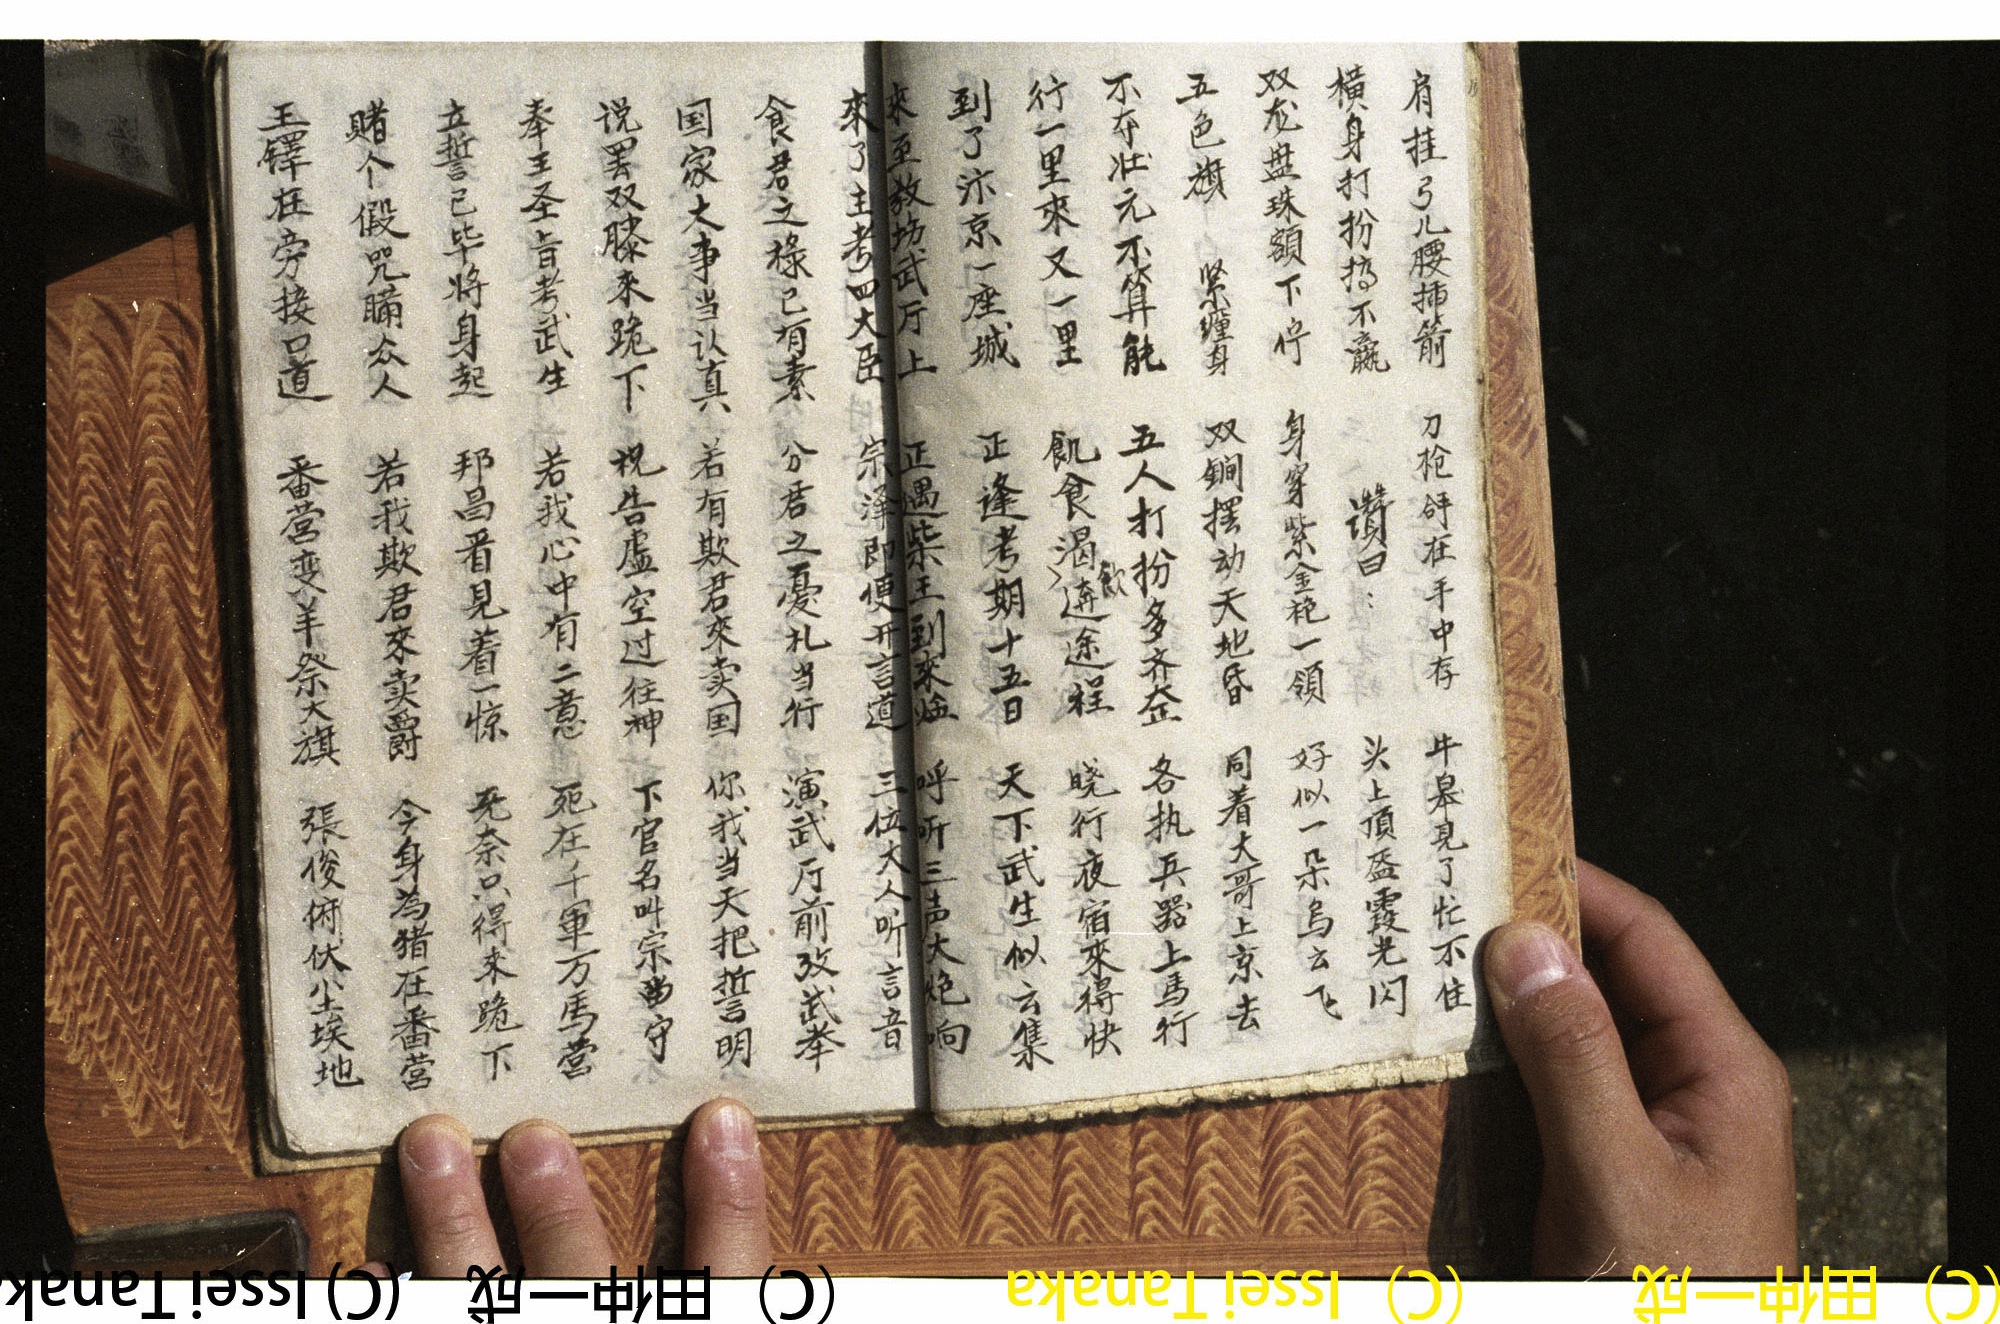 肩挂弓儿腰插箭 刀枪 在手中存 牛皋見了忙不住
横身打扮搞不贏 讚曰： 头上頂盔霞光闪
双龙盘珠額下停 身穿紫金袍一領 好似一朵烏云飞
五色横 紧纏身 双锏摆动天地昏 同着大哥上京去
不夺壮元不算能 五人打扮多齐正 各执兵器上馬行
行一里來又一里 飢食渴飲奔途程 晓行夜宿來得快
到了汴京一座城 正逢考期十五日 天下武生似云集
來至教场武厅上 正遇柴王到來临 呼听三声大炮响
來了主考四大臣 宗泽即便开言道 三位大人听言音
食君之禄已有素 分君之憂礼当行 演武厅前攷武举
国家大事当认真 若有欺君來卖国 你我当天把誓言明
说罢双膝來跪下 祝告虚空过往神 下官名叫宗 守
奉王圣旨考武生 若我心中有二意 死在千軍万馬营
立誓已毕将身起 邦昌看見着一惊 无奈只得來跪下
赌个假咒瞞众人 若我欺君來卖爵 今身為猪在番营
王鐸在旁接口道 番营变羊祭大旗 張俊俯伏尘埃地
(C) Issei Tanaka (C) 田仲一成 (C) Issei Tanaka (C) 田仲一成